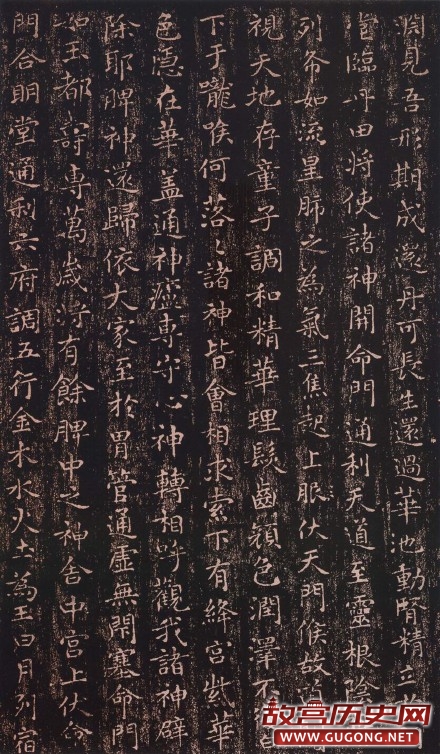 淵見吾形期成還丹可長生還過華池動腎精立
堂臨丹田將使諸神開命門通利天道至靈根陰
列布如流星肺之為氣三焦起上服伏天門候故
視天地存童子調和精華理髮齒顏色潤澤不
下于嚨喉何落〻諸神皆會相求索下有絳宮紫華
色隱在華蓋通神廬專守心神轉相呼觀我諸神辟
除耶脾神還歸依大家至於胃管通虛無閉塞命門
如王都壽專萬歲將有餘脾中之神舍中宮上伏命
門合明堂通利六府調五行金木水火土為王日月列宿
故宫历史网
WWW.GUGONG.NET